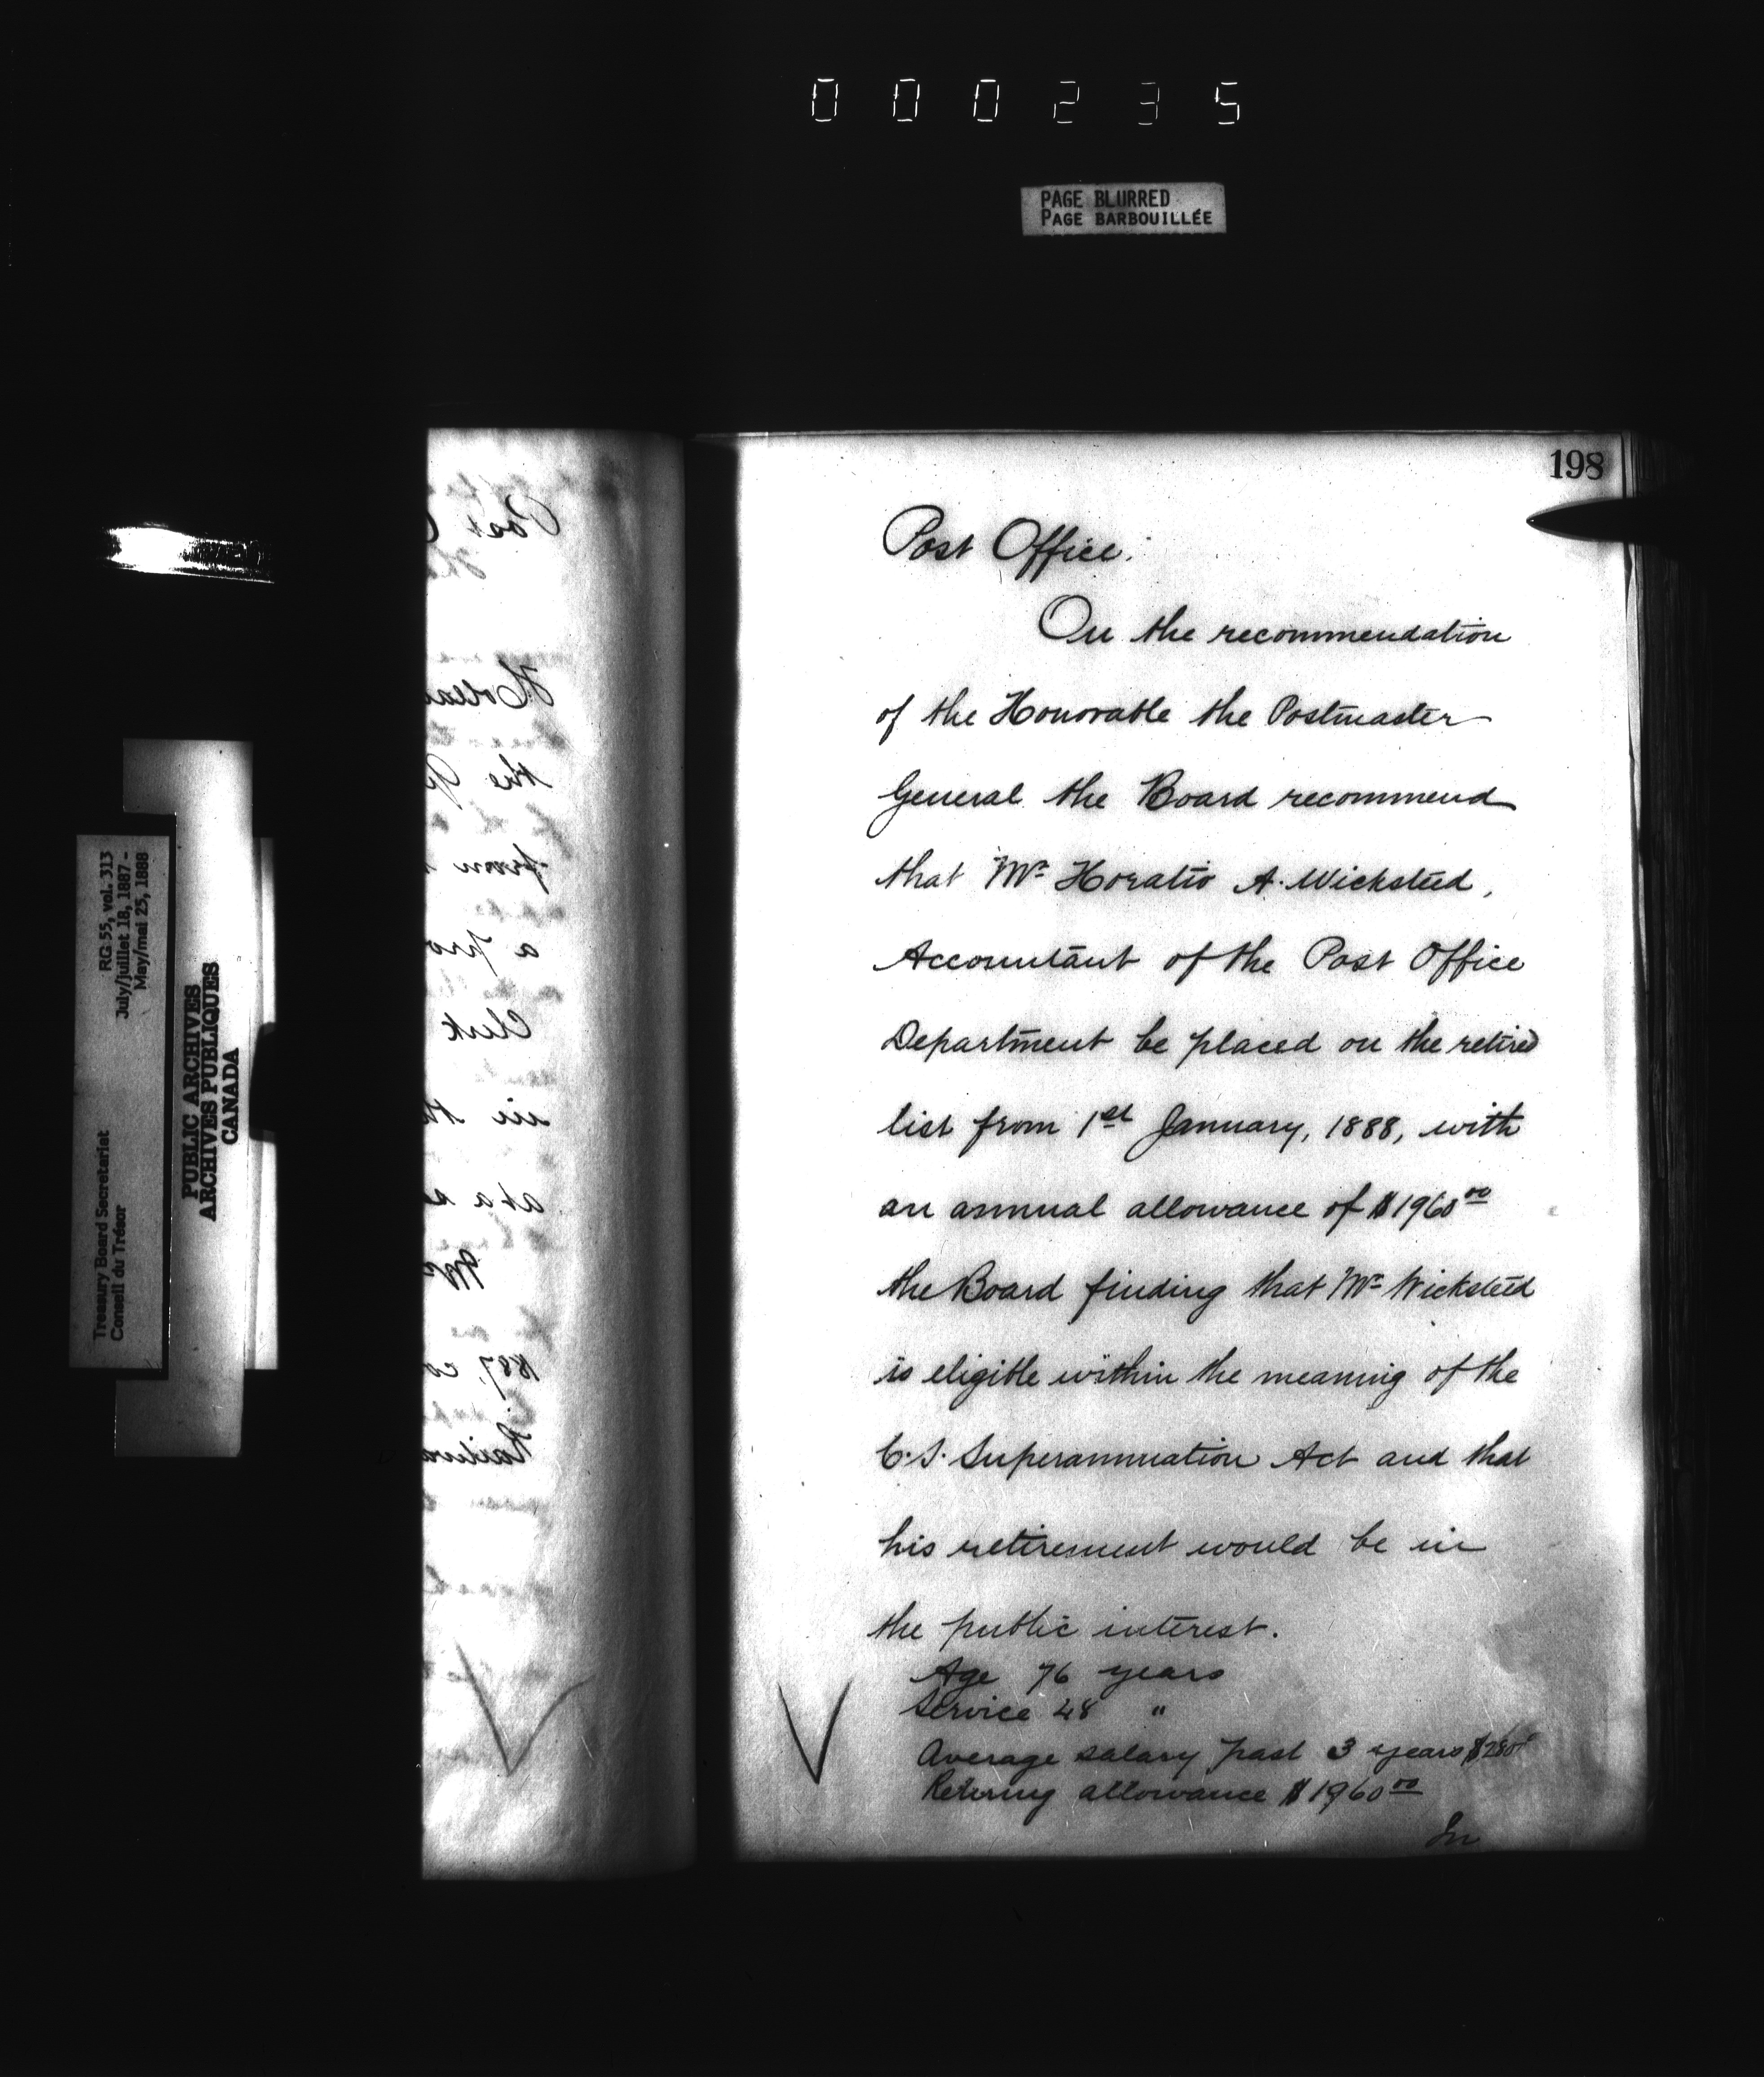 000235
PAGE BLURRED
PAGE BARBOUILLÉE
RG 55, vol. 313
July/juillet 18, 1887 -
May/mai 25, 1888
Treasury Board Secretariat
Conseil du Trésor
PUBLIC ARCHIVES
ARCHIVES PUBLIQUES
CANADA
198
Post Office.
On the recommendation
of the Honorable the Postmaster
General the Board recommend
that Mr Horatio A. Wicksteed,
Accountant of the Post Office
Department be placed on the retired
list from 1st January, 1888, with
an annual allowance of $1960 00
the Board finding that Mr Wicksteed
is eligible within the meaning of the
C.S. Superannuation Act and that
his retirement would be in
the public interest.
Age 76 years
Service 48 "
Average salary past 3 years $2800
Retiring allowance $1960 00
In